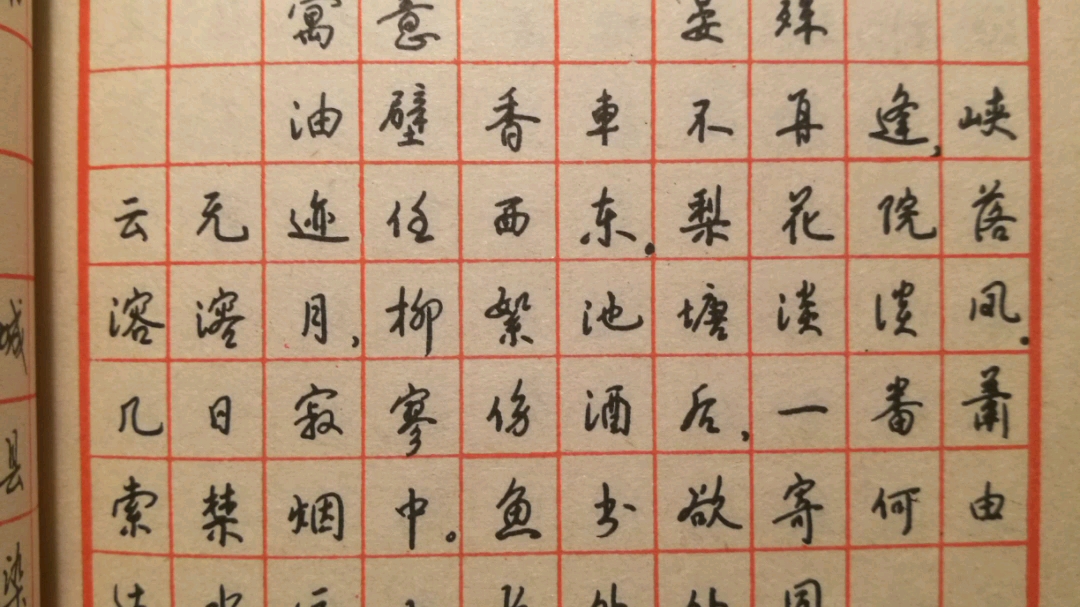 寓意 晏殊
油壁香車不再逢,峡
云无迹任西东.梨花院落
溶溶月,柳絮池塘淡淡风.
几日寂寥伤酒后,一番萧
索禁烟中。鱼书欲寄何由